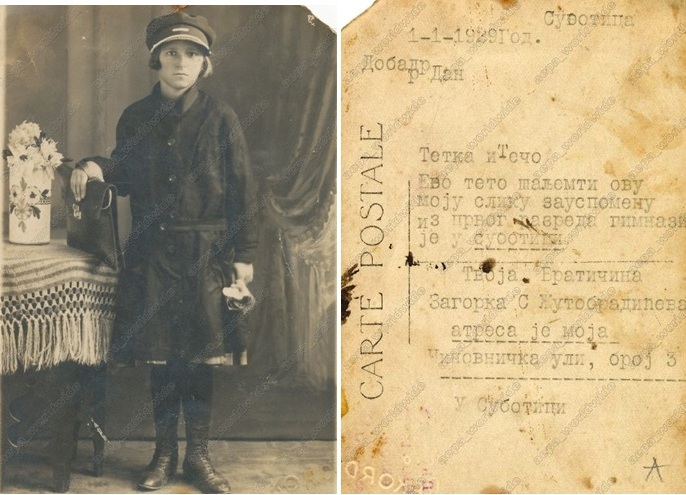 Сувотица
1-1-1929Год.
Добадр
р Дан
CARTE POSTALE
Тетка иТечо
Ево тето шаљемти ову
моју слику зауспомену
из првог разреда гимнази
је у суботици
Твоја Братичина
Загорка С Жутобрадићева
атреса је моја
Чиновничка ули, број 3
У Суботици